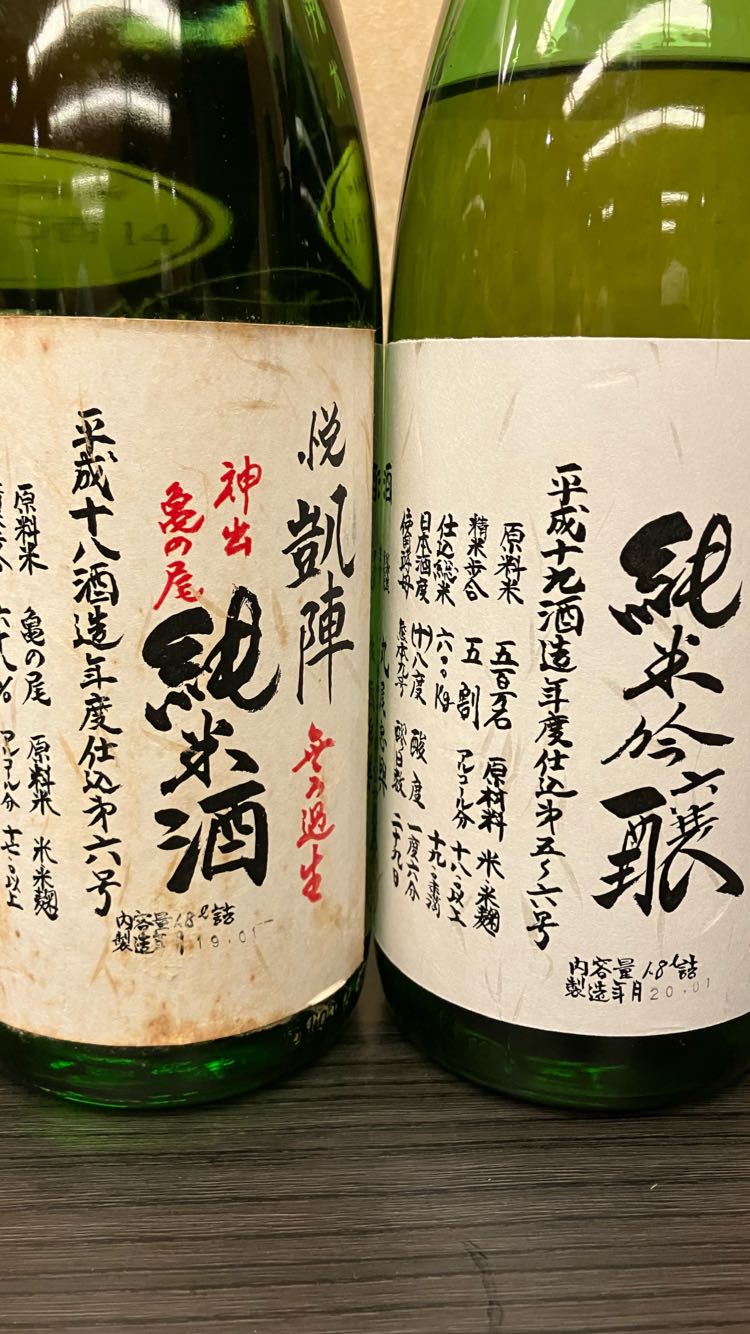 悦凱陣
無ろ過生
神出
亀の尾
純米酒
平成十八酒造年度仕込第六号
原料米 亀の尾 原料米 米米麹
六十八% アルコール分 十七以上
内容量1.8ℓ詰
製造年月19.01
純米吟醸
平成十九酒造年度仕込第五〜六号
原料米 五百万石 原材料 米米麹
精米歩合 五割 アルコール分 十八以上十九未満
仕込総米 六〇〇kg
日本酒度 (十)八度 酸度 一度六分
使用酵母 熊本九号 醪日数 二十九日
内容量1.8ℓ詰
製造年月20.01